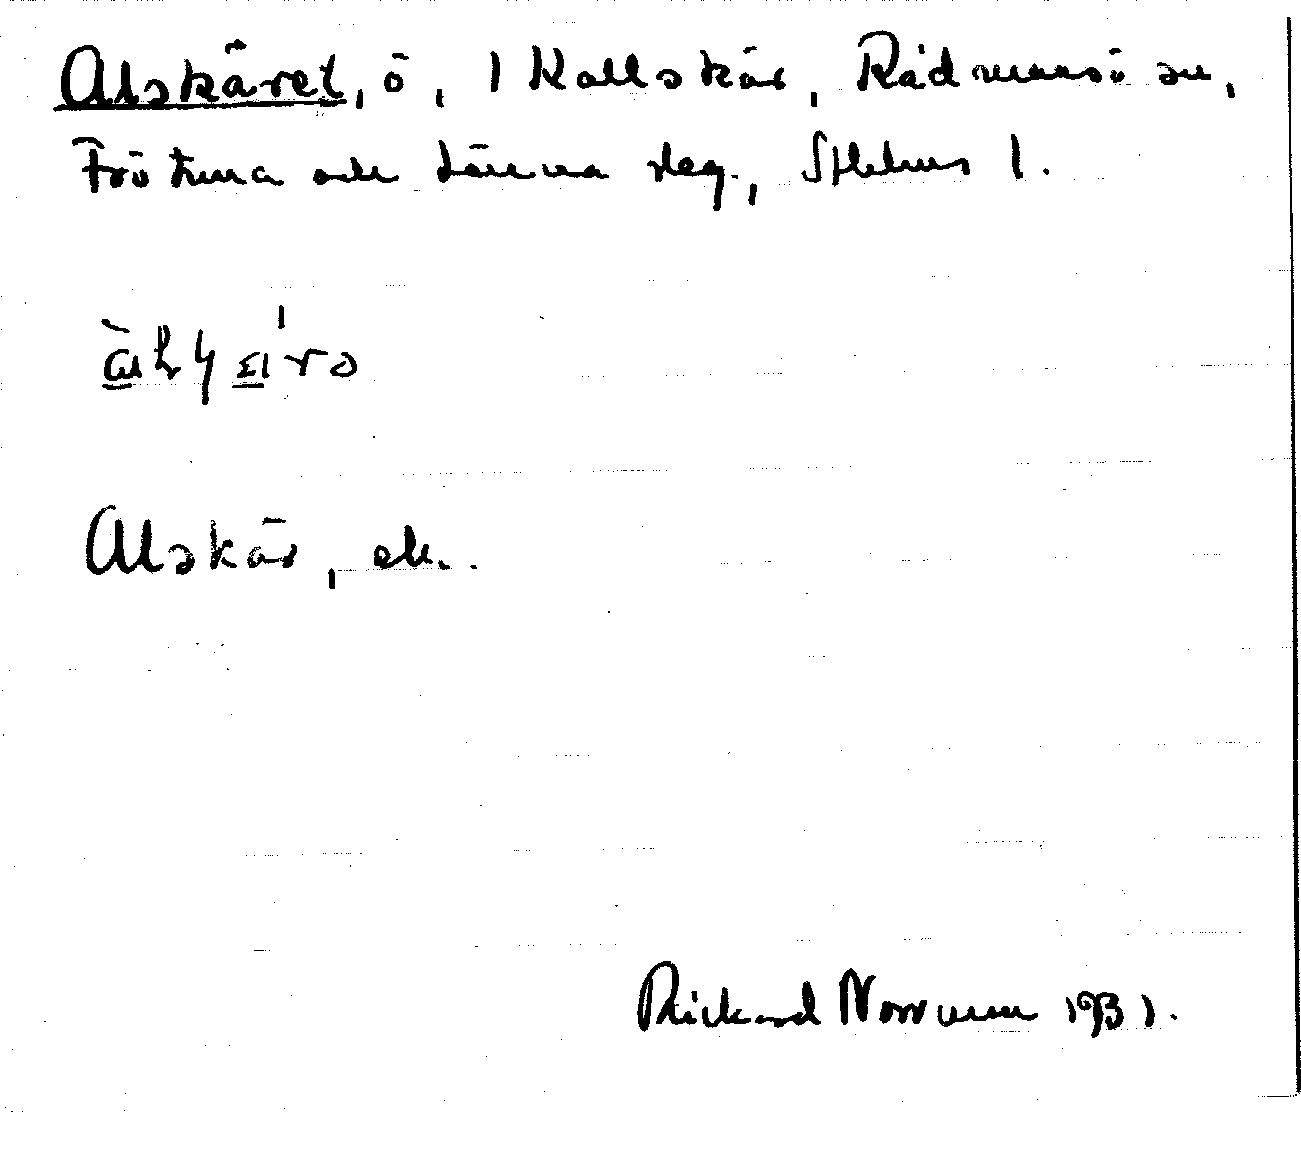 Alskäret, ö, 1 Kallskär, Rådmansö sn,
Frötuna och Länna skg., Sthlms l.
Alskär, ek.
Rickard Norrman 1931.